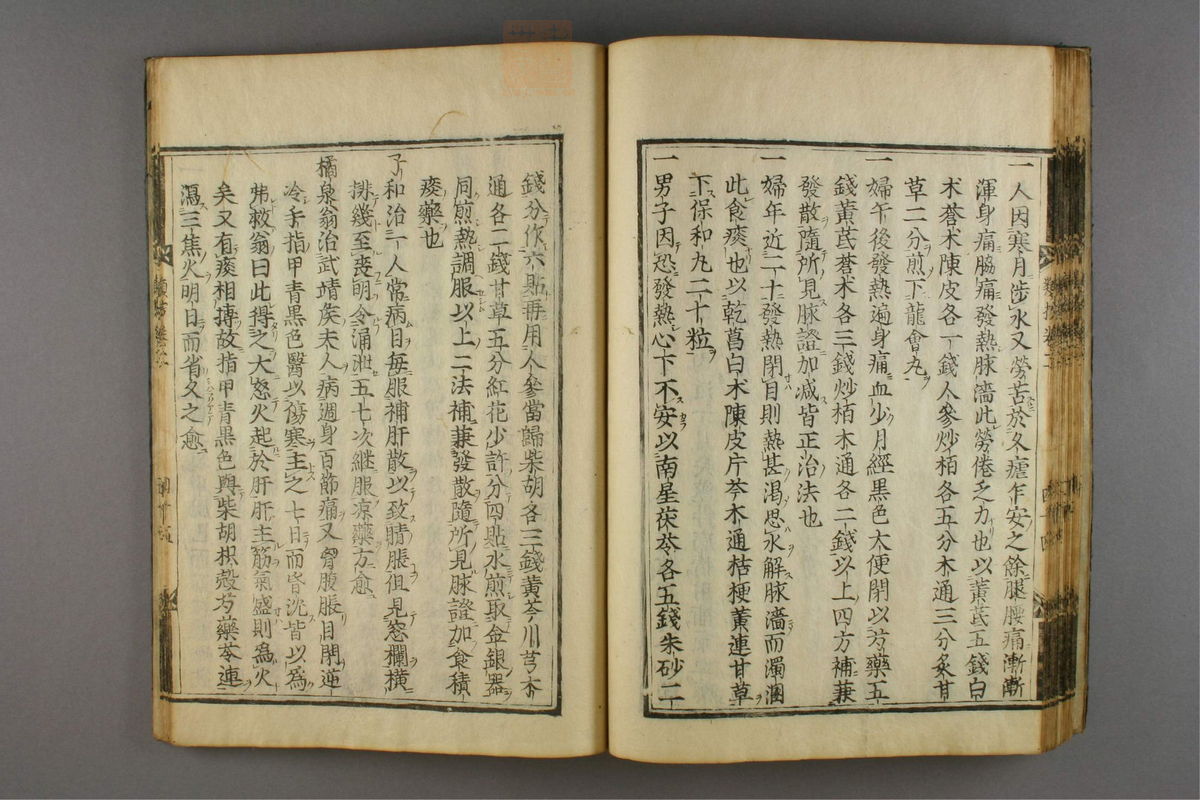 一人因寒月涉水又勞苦於久瘧乍安之餘腿腰痛漸漸
渾身痛脇痛發熱脉濇此勞倦乏力也以黃芪五錢白
术蒼术陳皮各一錢人參炒栢各五分木通三分炙甘
草二分煎下龍會丸
一婦午後發熱遍身痛血少月經黑色大便閉以芍藥五
錢黃芪蒼术各三錢炒栢木通各二錢以上四方補兼
發散隨所見脉證加减皆正治法也
一婦年近二十發熱閉目則熱甚渴思水解脉濇而濁溷
此食痰也以乾葛白术陳皮片芩木通桔梗黃連甘草
下保和丸二十粒
一男子因恐發熱心下不安以南星茯苓各五錢朱砂二
錢分作六貼再用人參當歸柴胡各三錢黃芩川芎木
通各二錢甘草五分紅花少許分四貼水煎取金銀器
同煎熱調服以上二法補兼發散隨所見脉證加食積
痰藥也
子和治一人常病目每服補肝散以致睛脹但見窓欄橫
排幾至喪明令涌泄五七次継服凉藥方愈
橘泉翁治武靖矦夫人病週身百節痛又胷腹脹目閉逆
冷手指甲青黑色醫以傷寒主之七日而昏沈皆以為
弗救翁曰此得之大怒火起於肝肝主筋氣盛則為火
矣又有痰相摶故指甲青黑色與柴胡枳殻芍藥苓連
瀉三焦火明日而省久之愈